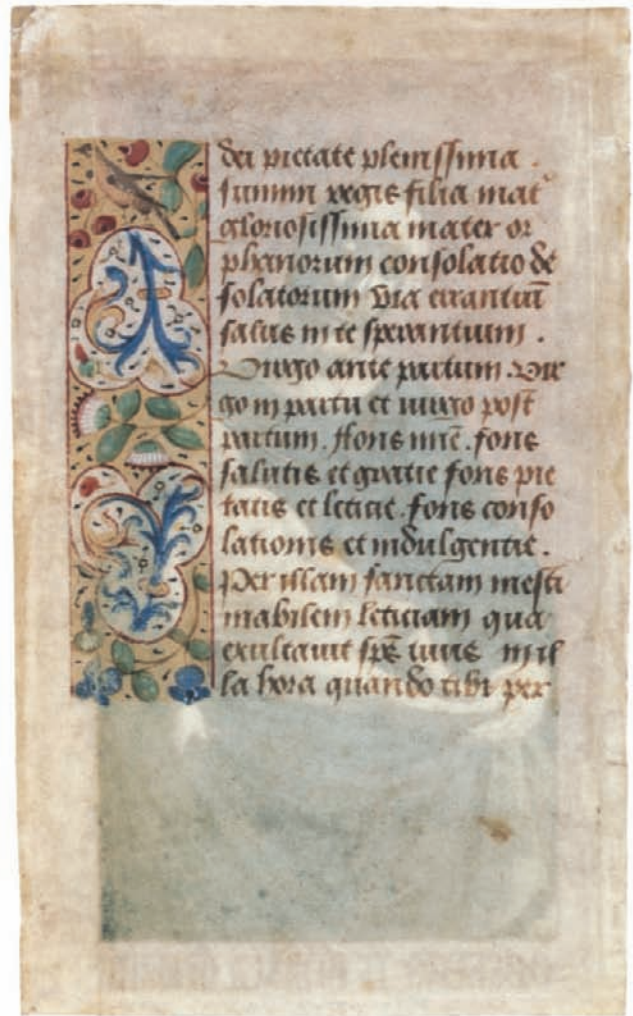 dei pietate plenissima .
summi regis filia mat̄
gloriosissima mater or
phanorum consolatio de
solatorum via errantiū
salus in te sperantium .
Virgo ante partum . vir
go in partu et virgo post
partum . ffons mīe . fons
salutis et gratie fons pie
tatis et leticie . fons conso
lationis et indulgentie .
Per illam sanctam inesti
mabilem leticiam qua
exultauit sp̄s tuus in il
la hora quando tibi per